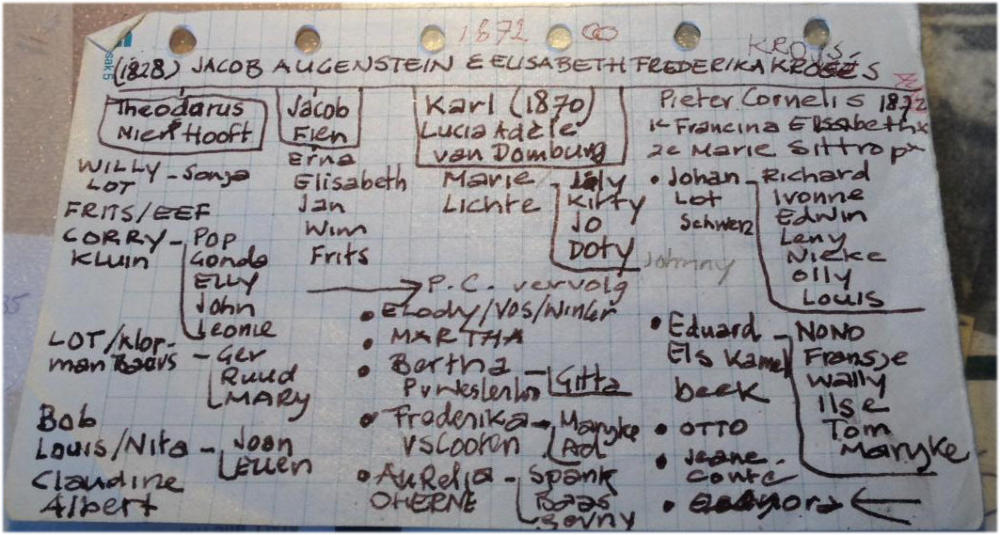 1872 ∞
KROIS
(1828) JACOB AUGENSTEIN & ELISABETH FREDERIKA
Theodorus
Nien Hooft
WILLY - Sonja
LOT
FRITS/EEF
CORRY - Pop
KLUIN Gonda
ELLY
John
Leonie
LOT/Klop-
man Baars - Ger
Ruud
MARY
Bob
Louis/Nita - Joan
Ellen
Claudine
Albert
Jacob
Fien
Erna
Elisabeth
Jan
Wim
Frits
Karl (1870)
Lucia Adèle
van Domburg
Marie
Lichte
Kitty
Jo
DOTY
Johnny
→ P.C. vervolg
• Elody/Vos/Winter
• MARTHA
• Bertha - Gitta
• Frederika - Maryke
Ad
• Aurelia - Spank
OHERNE Baas
Pieter Cornelis 1872
1e Francina Elisabeth x
2e Marie Sittrop x
• Johan - Richard
Lot Ivonne
Schwerz Edwin
Leny
Nicke
Olly
Louis
• Eduard - NONO
Els Kamer Fransje
beek Wally
Ilse
Tom
Maryke
• OTTO
• Jeane
Conte
sak 5